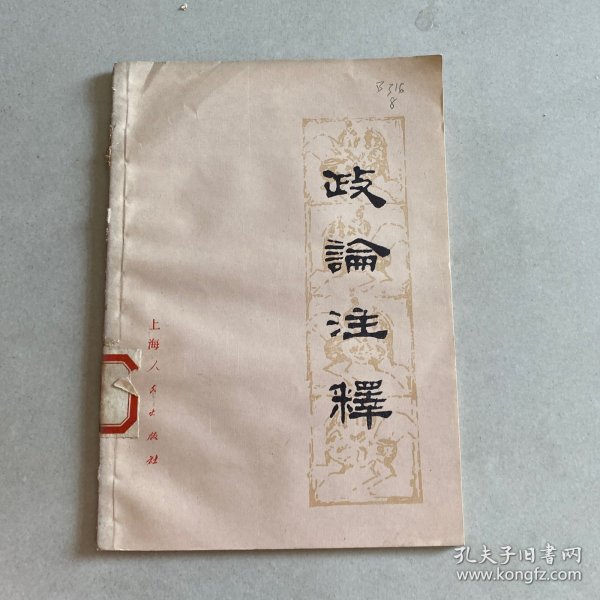 316
8
政論注釋
上海人民出版社
孔夫子旧書网
www.kongfz.com